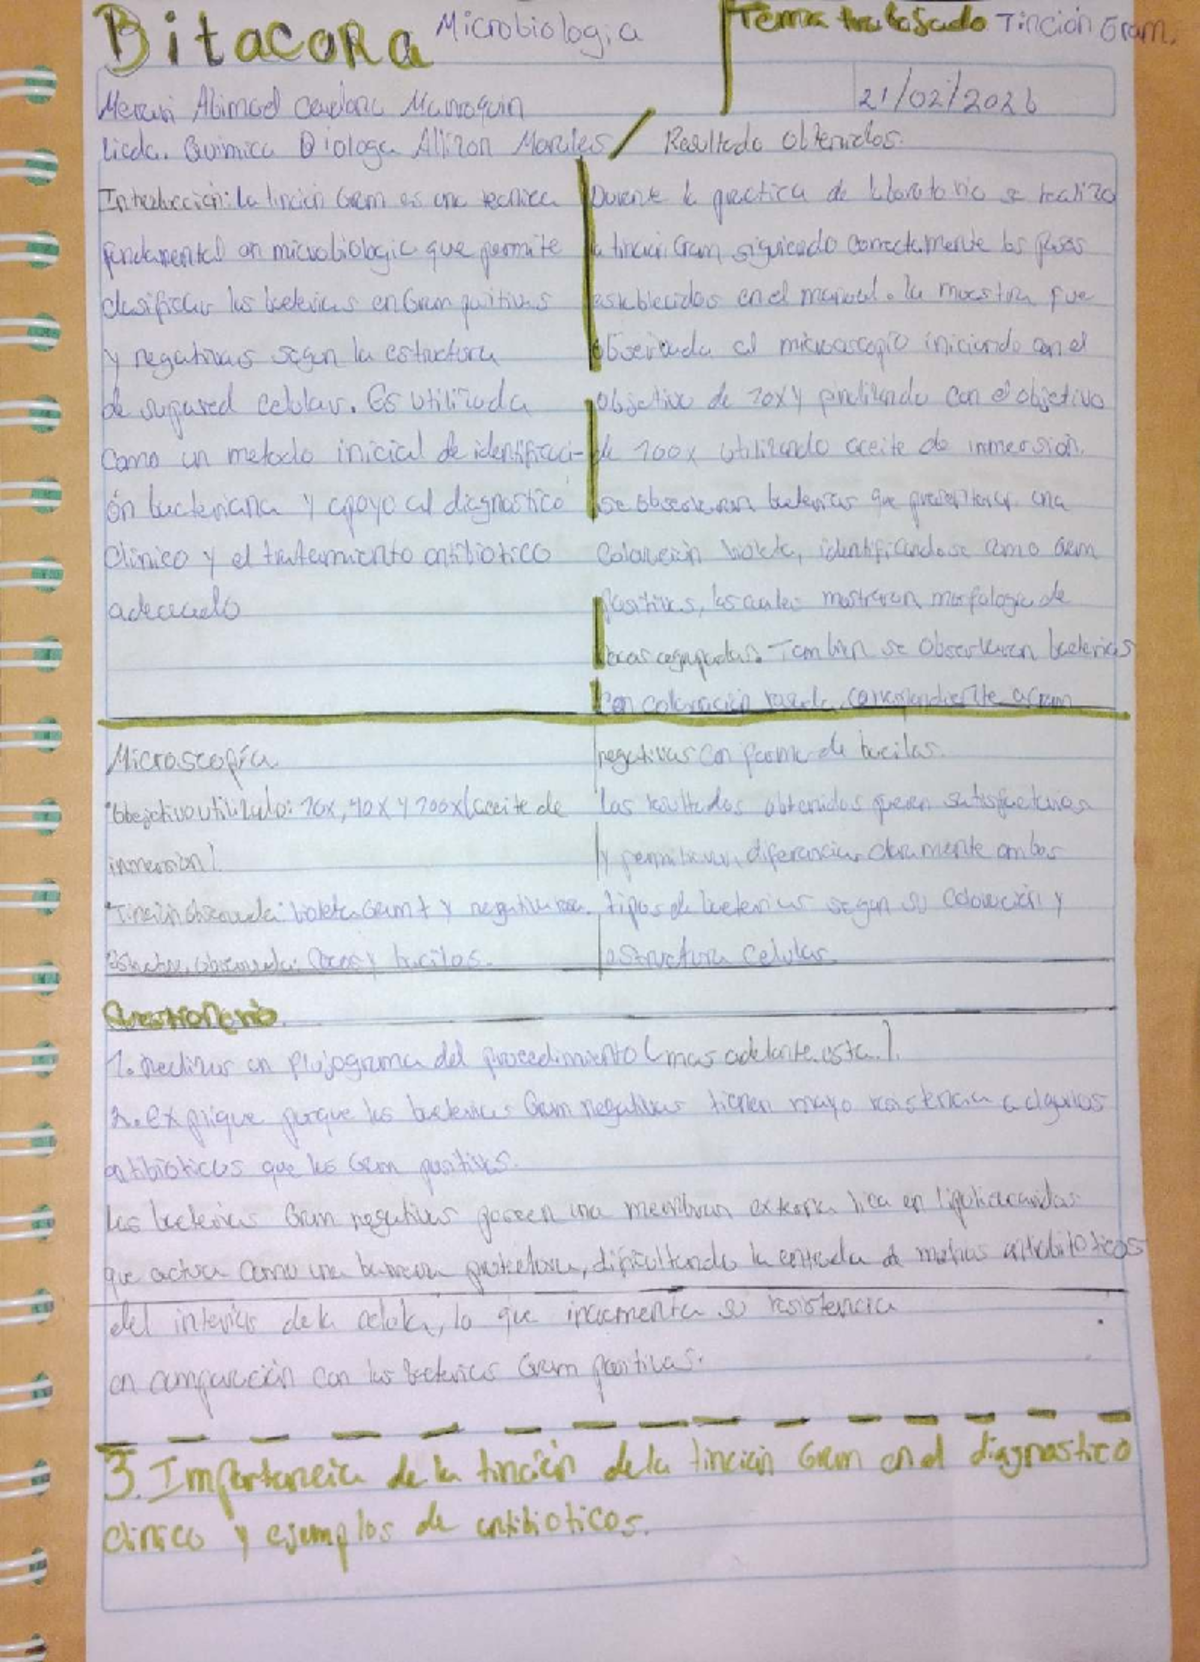 Bitacora Microbiologia
Tema trabajado Tinción Gram.
Abimael Marroquin
21/02/2026
Licda. Quimica Biologa Morales / Resultado obtenidos.
Introducción: La tincion Gram es una tecnica
fundamental en microbiologia que permite
clasificar las bacterias en Gram positivas
y negativas segun la estructura
de su pared celular. Es utilizada
Como un metodo inicial de identificaci-
ón bacteriana y apoyo al diagnostico
Clinico y el tratamiento antibiotico
adecuado
Durante la practica de laboratorio se realizo
la tincion Gram siguiendo correctamente los pasos
establecidos en el manual. la muestra fue
observada al microscopio iniciando con el
objetivo de 10x y finalizando con el objetivo
de 100x utilizando aceite de inmersion.
se observaron bacterias que presentaron una
Coloración violeta, identificandose como Gram
positivas, las cuales mostraron morfologia de
cocos agrupados. Tambien se observaron bacterias
Con coloración rosada, correspondiente a Gram
negativas con forma de bacilos.
Los resultados obtenidos fueron satisfactorios
y permitieron diferenciar claramente ambos
tipos de bacterias segun su Coloración y
estructura celular
Microscopía
*Objetivo utilizado: 10x, 40x y 100x (aceite de
inmersion)
*Tinción observada: violeta Gram + y negativa
observada: Cocos y bacilos.
Cuestionario.
1. Realizar un flujograma del procedimiento (mas adelante esta.).
2. explique porque las bacterias Gram negativas tienen mayo resistencia a algunos
antibioticos que las Gram positivas.
Las bacterias Gram negativas poseen una membrana externa rica en
que actua como una barrera protectora, dificultando la entrada de antibioticos
del interior de la celula, lo que incrementa su resistencia
en comparación con las bacterias Gram positivas.
3. Importancia de la tinción de la tinción Gram en el diagnostico
clinico y ejemplos de antibioticos.